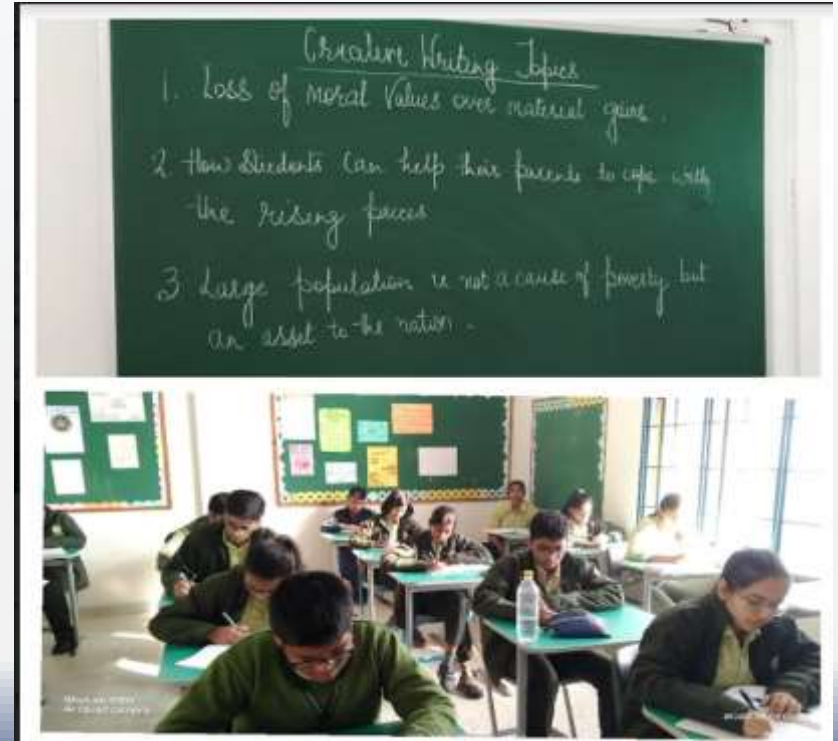 Creative Writing Topics
1. Loss of Moral Values over material gains.
2 How Students Can help their parents to cope with
the rising prices
3 Large population is not a cause of poverty but
an asset to the nation.